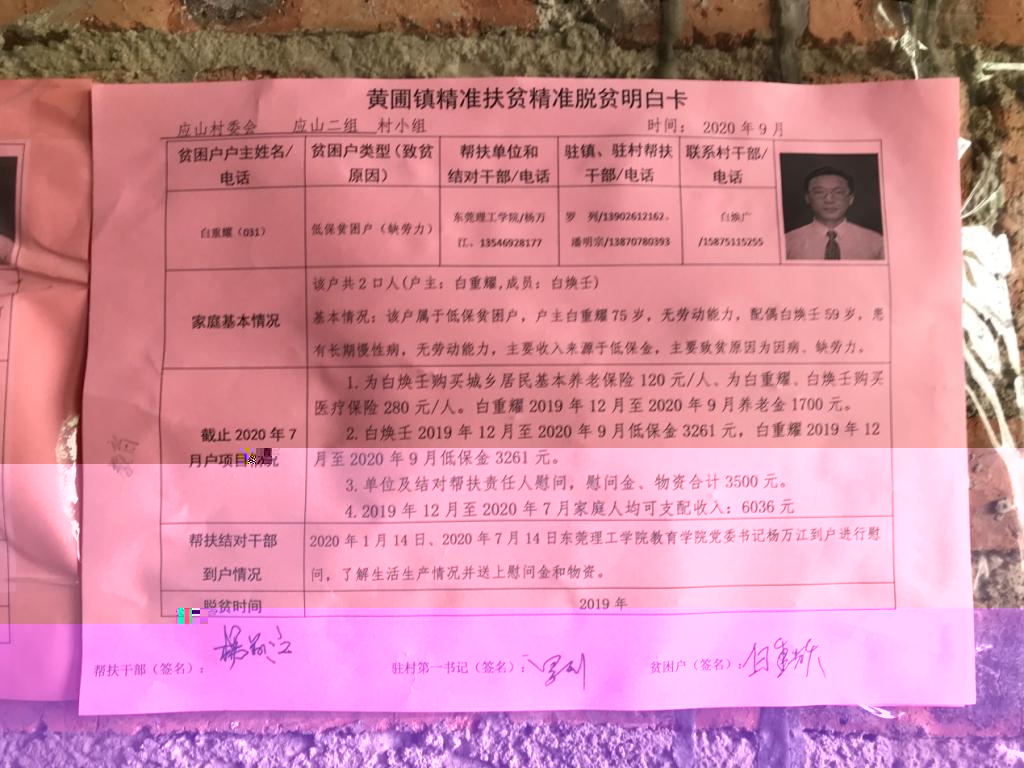 黄圃镇精准扶贫精准脱贫明白卡
应山村委会 应山二组 村小组 时间： 2020 年 9 月
贫困户户主姓名/
电话
贫困户类型（致贫
原因）
帮扶单位和
结对干部/电话
驻镇、驻村帮扶
干部/电话
联系村干部/
电话
白重耀（031）
低保贫困户（缺劳力）
东莞理工学院/杨万
江。13546928177
罗 列/13902612162。
潘明宗/13870780393
白焕广
/15875115255
家庭基本情况
该户共 2 口人(户主：白重耀,成员：白焕壬)
基本情况：该户属于低保贫困户，户主白重耀 75 岁，无劳动能力，配偶白焕壬 59 岁，患
有长期慢性病，无劳动能力，主要收入来源于低保金，主要致贫原因为因病、缺劳力。
截止 2020 年 7
月户项目
1. 为白焕壬购买城乡居民基本养老保险 120 元/人、为白重耀、白焕壬购买
医疗保险 280 元/人。白重耀 2019 年 12 月至 2020 年 9 月养老金 1700 元。
2. 白焕壬 2019 年 12 月至 2020 年 9 月低保金 3261 元，白重耀 2019 年 12
月至 2020 年 9 月低保金 3261 元。
3. 单位及结对帮扶责任人慰问，慰问金、物资合计 3500 元。
4. 2019 年 12 月至 2020 年 7 月家庭人均可支配收入：6036 元
帮扶结对干部
到户情况
2020 年 1 月 14 日、2020 年 7 月 14 日东莞理工学院教育学院党委书记杨万江到户进行慰
问，了解生活生产情况并送上慰问金和物资。
脱贫时间
2019 年
帮扶干部（签名）： 杨万江
驻村第一书记（签名）： 罗列
贫困户（签名）： 白重耀